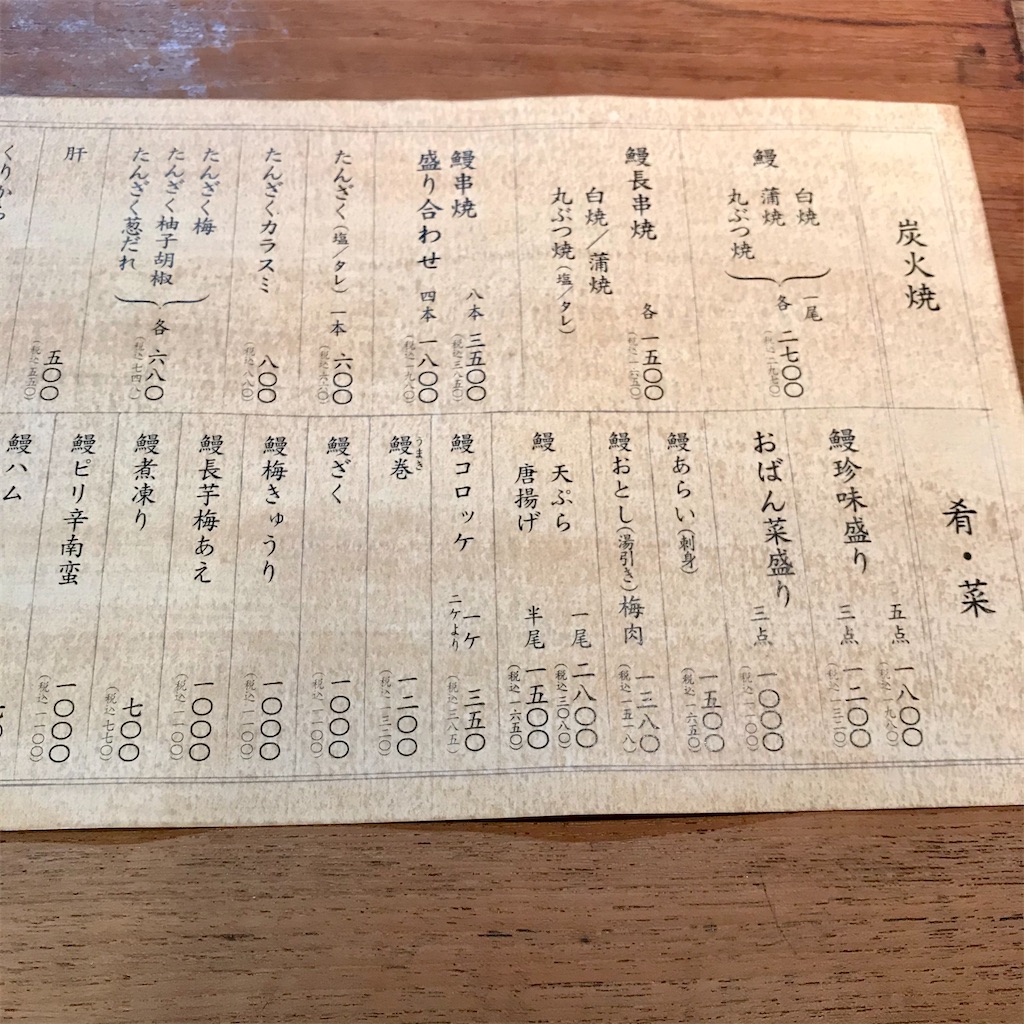 炭火焼
鰻
白焼
蒲焼
丸ぶつ焼
一尾
各 二七〇〇
(税込 二九七〇)
鰻長串焼
白焼/蒲焼
丸ぶつ焼(塩/タレ)
各 一五〇〇
(税込 一六五〇)
鰻串焼
盛り合わせ
八本 三五〇〇
(税込 三八五〇)
四本 一八〇〇
(税込 一九八〇)
たんざく(塩/タレ) 一本 六〇〇
(税込 六六〇)
たんざくカラスミ 八〇〇
(税込 八八〇)
たんざく梅
たんざく柚子胡椒
たんざく葱だれ
各 六八〇
(税込 七四八)
肝 五〇〇
(税込 五五〇)
くりから
肴・菜
鰻珍味盛り
五点 一八〇〇
(税込 一九八〇)
三点 一二〇〇
(税込 一三二〇)
おばん菜盛り 三点 一〇〇〇
(税込 一一〇〇)
鰻あらい(刺身) 一五〇〇
(税込 一六五〇)
鰻おとし(湯引き)梅肉 一三八〇
(税込 一五一八)
鰻
天ぷら
唐揚げ
一尾 二八〇〇
(税込 三〇八〇)
半尾 一五〇〇
(税込 一六五〇)
鰻コロッケ 一ケ 三五〇
二ケより (税込 三八五)
鰻巻 一二〇〇
うまき
(税込 一三二〇)
鰻ざく 一〇〇〇
(税込 一一〇〇)
鰻梅きゅうり 一〇〇〇
(税込 一一〇〇)
鰻長芋梅あえ 一〇〇〇
(税込 一一〇〇)
鰻煮凍り 七〇〇
(税込 七七〇)
鰻ピリ辛南蛮 一〇〇〇
(税込 一一〇〇)
鰻ハム